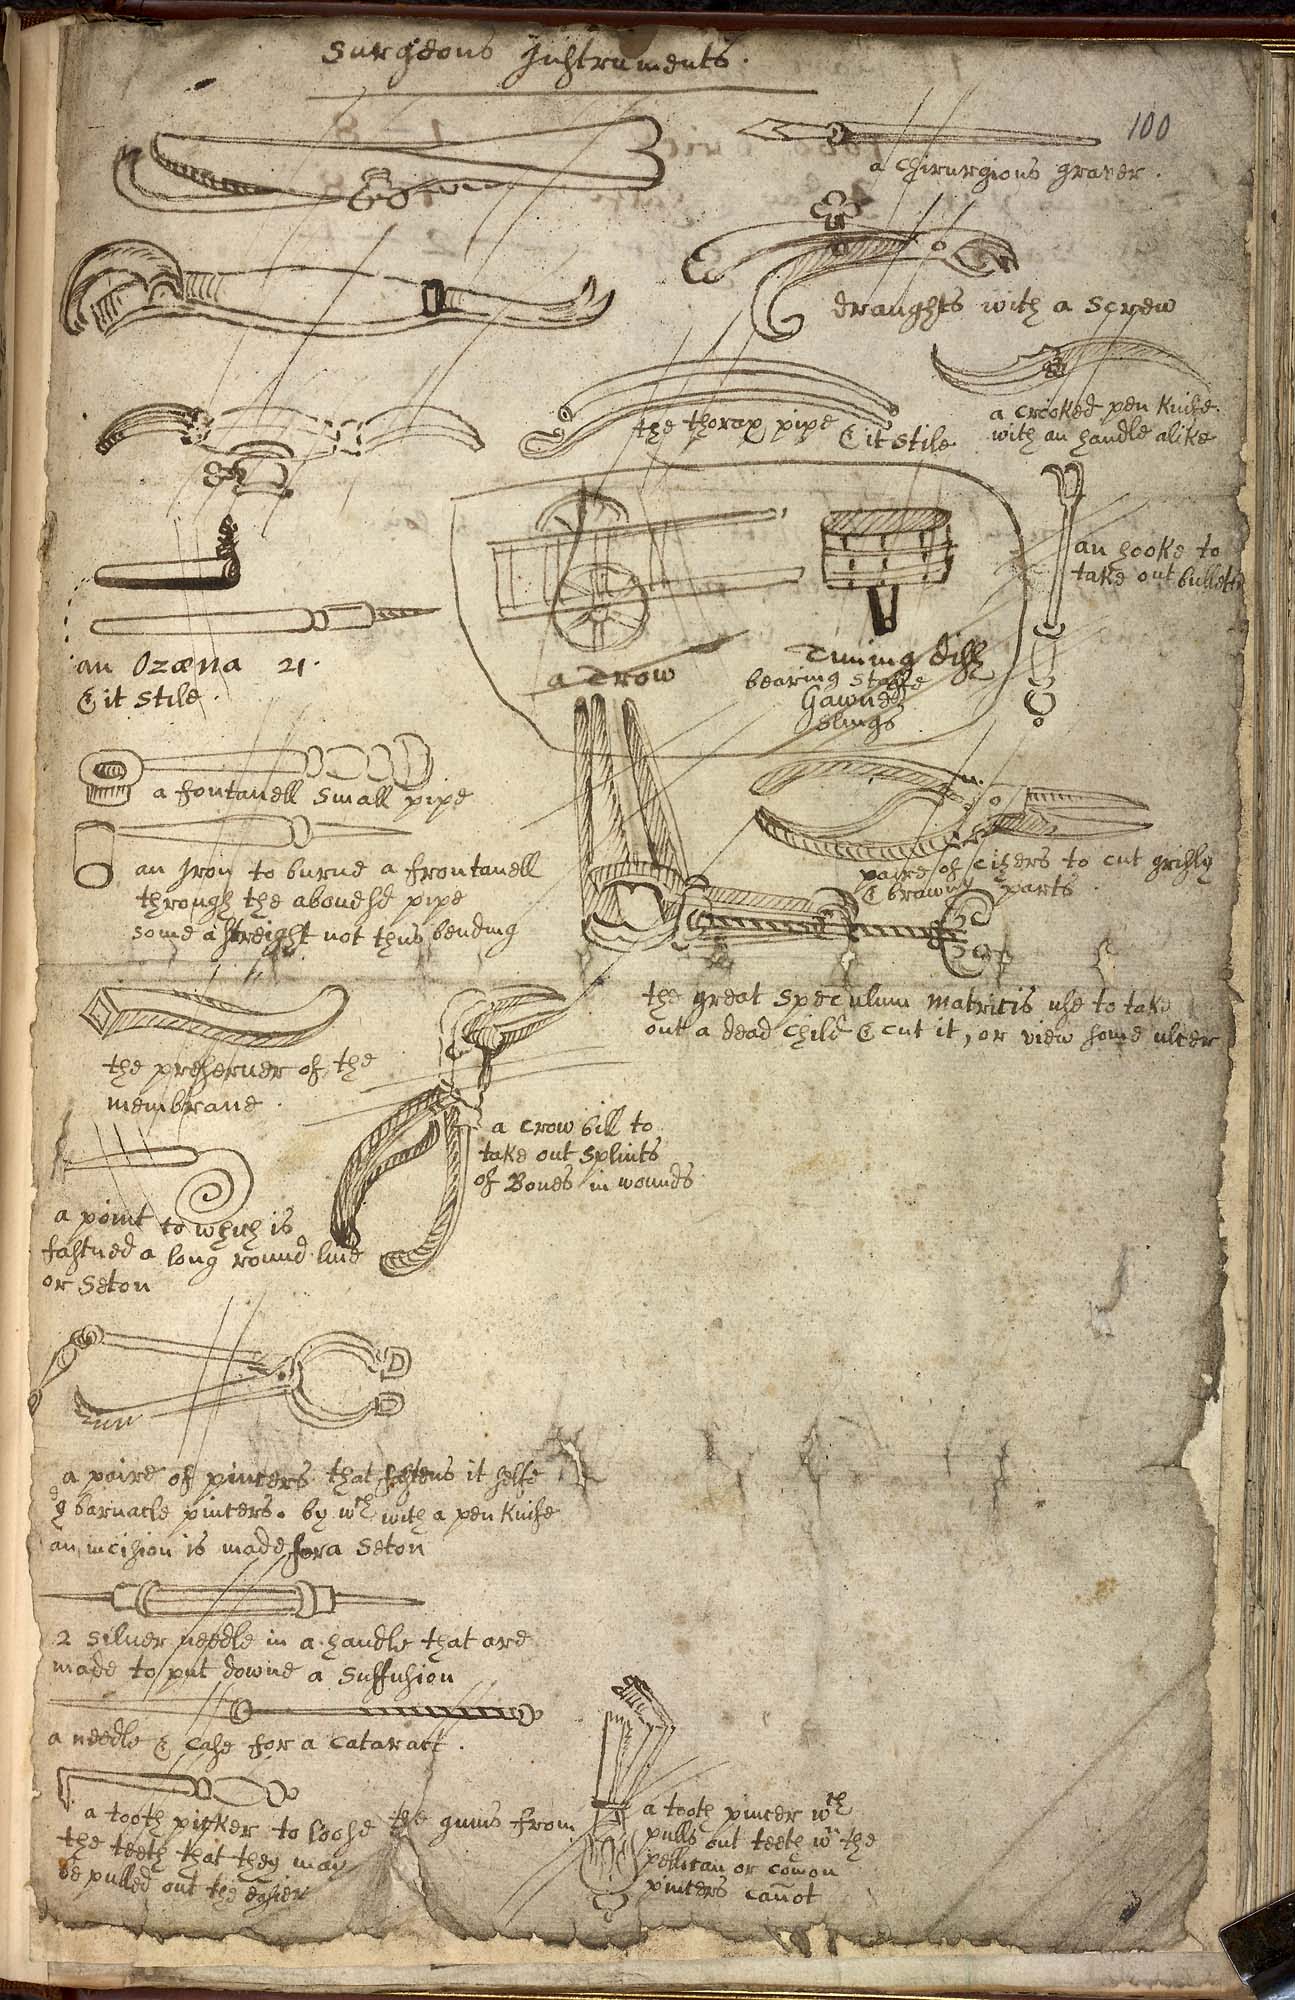 Surgeons Instruments.
100
a Chirurgions graver.
draughts with a Screw
the thorax pipe & it stile
a crooked pen knife
with an handle alike
an hooke to
take out bullets
an Ozæna 21.
& it stile.
a Drow
Tuning
bearing staffe
slings
a fontanell small pipe
an Iron to burne a frontanell
through the abouesd pipe
some a streight not thus bending
paire of cizers to cut grisly
& brawny parts.
the great Speculum matricis use to take
out a dead child & cut it, or view some ulcer
the preseruer of the
membrane.
a crow bill to
take out splints
of Bones in wounds
a point to which is
fastned a long round line
or Seton
a paire of pincers that fastens it selfe
barnacle pincers. by wch with a pen knife
an incision is made for a Seton
2 siluer needle in a handle that are
made to put downe a Suffusion
a needle & case for a Cataract.
a tooth picker to loose the gums from
the teeth that they may
be pulled out the easier
a tooth pincer wth
pulls out teeth wch the
pellican or comon
pincers canot